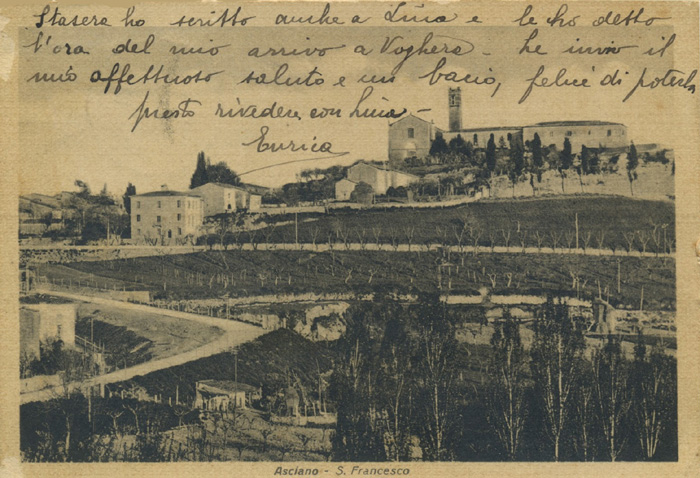 Stasera ho scritto anche a Lina e le ho detto
l'ora del mio arrivo a Voghera - Le invio il
mio affettuoso saluto e un bacio, felice di poterla
presto rivedere con Lina -
Enrica
Asciano - S. Francesco